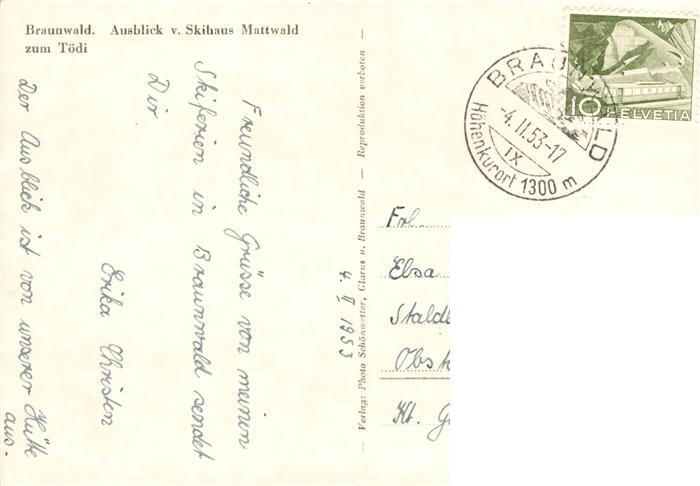 Braunwald. Ausblick v. Skihaus Mattwald
zum Tödi
Freundliche Grüsse von meinen
Skiferien in Braunwald sendet
Dir
Erika Christen
Der Ausblick ist von unserer Hütte
aus.
4. II 1953
Verlag: Photo Schönwetter, Glarus u. Braunwald — Reproduktion verboten —
BRAUNWALD
-4.II.53-17
IX
Höhenkurort 1300 m
10 HELVETIA
Frl.
Elsa
Kt.